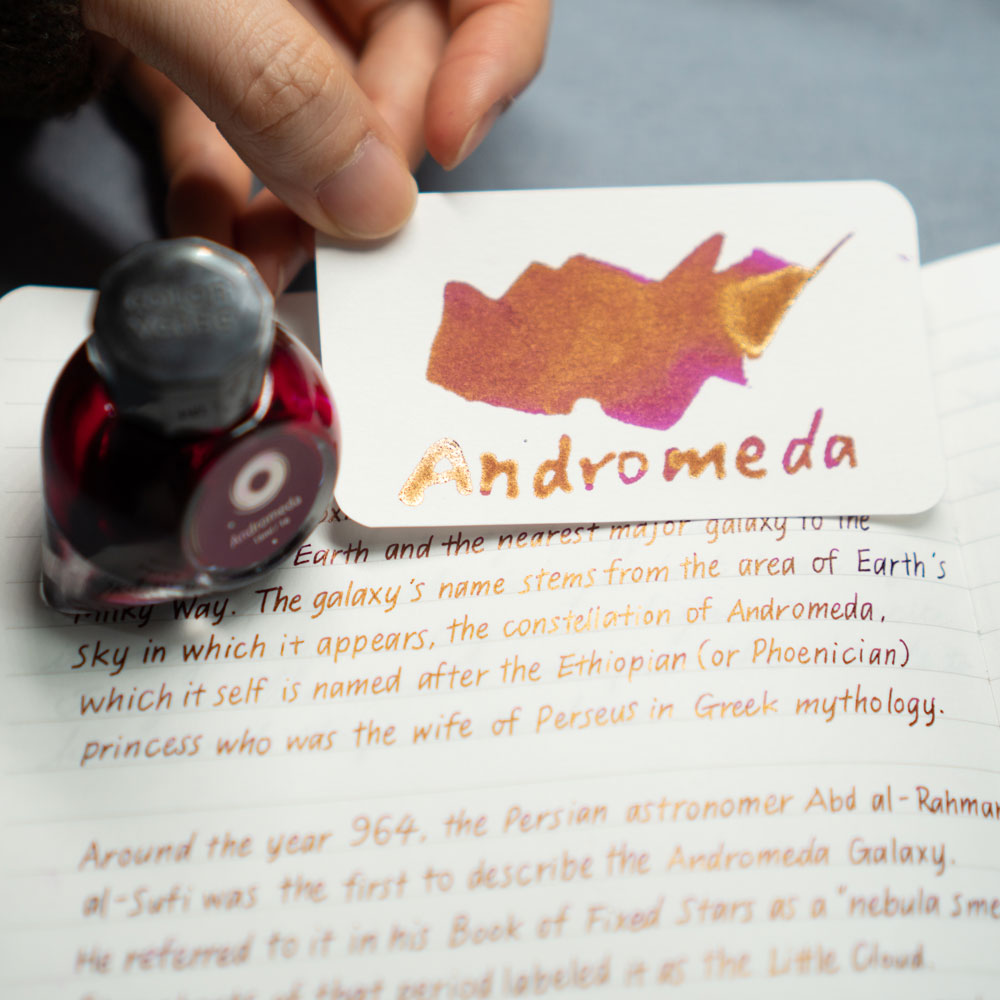 Andromeda
Andromeda
Earth and the nearest major galaxy to the
Milky Way. The galaxy's name stems from the area of Earth's
sky in which it appears, the constellation of Andromeda,
which it self is named after the Ethiopian (or Phoenician)
princess who was the wife of Perseus in Greek mythology.
Around the year 964, the Persian astronomer Abd al-Rahman
al-Sufi was the first to describe the Andromeda Galaxy.
He referred to it in his Book of Fixed Stars as a "nebula
of that period labeled it as the Little Cloud.